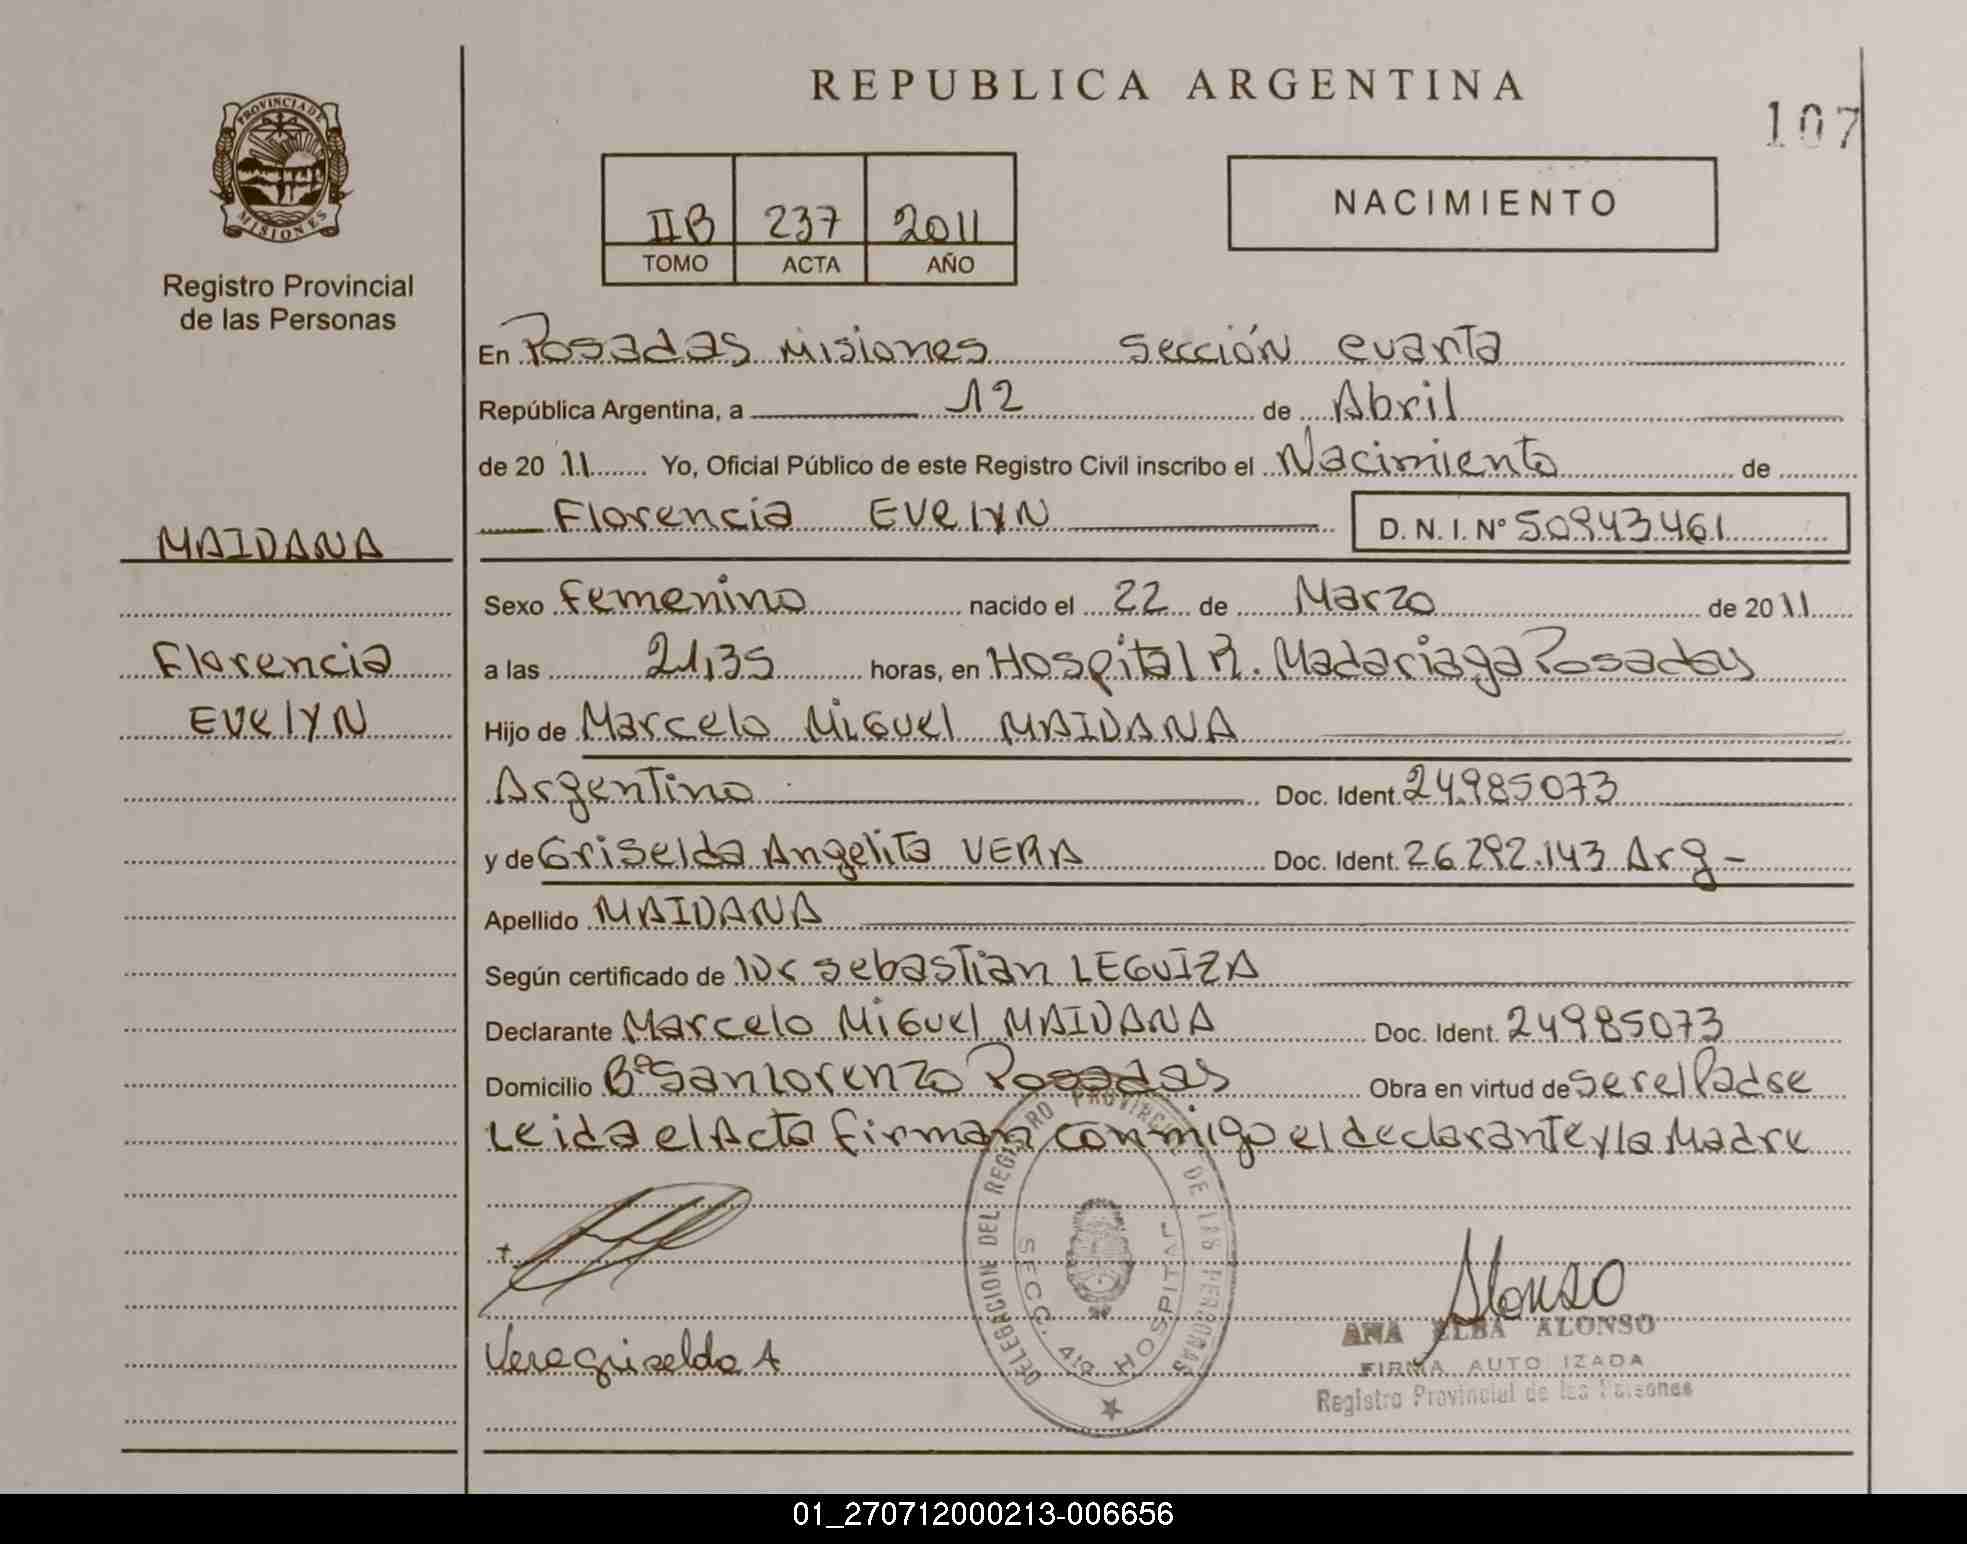 REPUBLICA ARGENTINA
107
PROVINCIA DE
MISIONES
Registro Provincial
de las Personas
IIB 237 2011
TOMO ACTA AÑO
NACIMIENTO
En Posadas Misiones sección cuarta
República Argentina, a 12 de Abril
de 20 11 Yo, Oficial Público de este Registro Civil inscribo el Nacimiento de
Florencia Evelyn D. N. I. Nº 50943461
MAIDANA
Florencia
Evelyn
Sexo Femenino nacido el 22 de Marzo de 20 11
a las 21,35 horas, en Hospital R. Madariaga Posadas
Hijo de Marcelo Miguel MAIDANA
Argentino Doc. Ident. 24.985073
y de Griselda Angelita VERA Doc. Ident. 26.292.143 Arg -
Apellido MAIDANA
Según certificado de Dr Sebastian LEGUIZA
Declarante Marcelo Miguel MAIDANA Doc. Ident. 24985073
Domicilio Bº San Lorenzo Posadas Obra en virtud de ser el Padre
Leida el Acta firman conmigo el declarante y la Madre
DELEGACION DEL REGISTRO PROVINCIAL DE LAS PERSONAS
SECC. 4ta HOSPITAL
Vera griselda A
Alonso
ANA ELBA ALONSO
FIRMA AUTO IZADA
Registro Provincial de las Personas
01_270712000213-006656